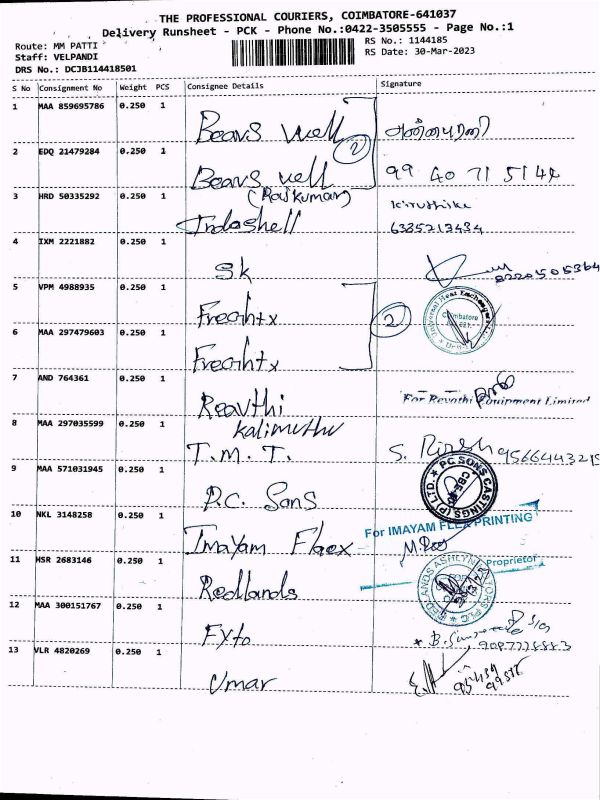 THE PROFESSIONAL COURIERS, COIMBATORE-641037
Delivery Runsheet - PCK - Phone No.:0422-3505555 - Page No.:1
Route: MM PATTI
RS No.: 1144185
Staff: VELPANDI
RS Date: 30-Mar-2023
DRS No.: DCJB114418501
S No Consignment No Weight PCS Consignee Details Signature
1 MAA 859695786 0.250 1 Beavs well
2 EDQ 21479284 0.250 1 Beavs well 99 40 71 5144
(Rajkumar)
3 HRD 50335292 0.250 1 Indoshell
6385213434
4 IXM 2221882 0.250 1 Sk
5 VPM 4988935 0.250 1 Freahtx
2
6 MAA 297479603 0.250 1 Freahtx
7 AND 764361 0.250 1 Reavthi
For Revathi Equipment Limited
kalimuthu
8 MAA 297035599 0.250 1 T.M.T.
9 MAA 571031945 0.250 1 P.C. Sons
PC SONS CASTINGS (P) LTD.
10 NKL 3148258 0.250 1 Imayam Flaex
For IMAYAM FLEX PRINTING
Proprietor
11 HSR 2683146 0.250 1 Redlands
12 MAA 300151767 0.250 1 Fxto
13 VLR 4820269 0.250 1 Umar